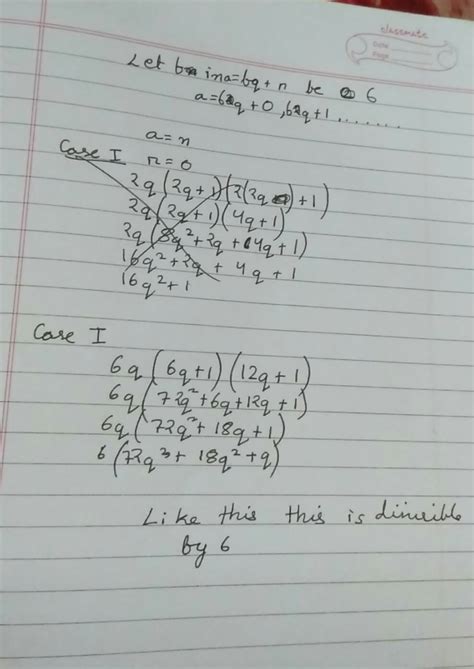 classmate
Date
Page
Let b in a=bq + n be 6
a=6q + 0, 6q+1 .......
a = n
Case I n = 0
2q (2q+1) (2(2q) +1)
2q (2q+1) (4q+1)
2q (8q² + 2q + 4q + 1)
16q² + 2q + 4q + 1
16q² + 1
Case I
6q (6q+1) (12q+1)
6q (72q² + 6q + 12q + 1)
6q (72q² + 18q + 1)
6 (72q³ + 18q² + q)
Like this this is divisible
by 6